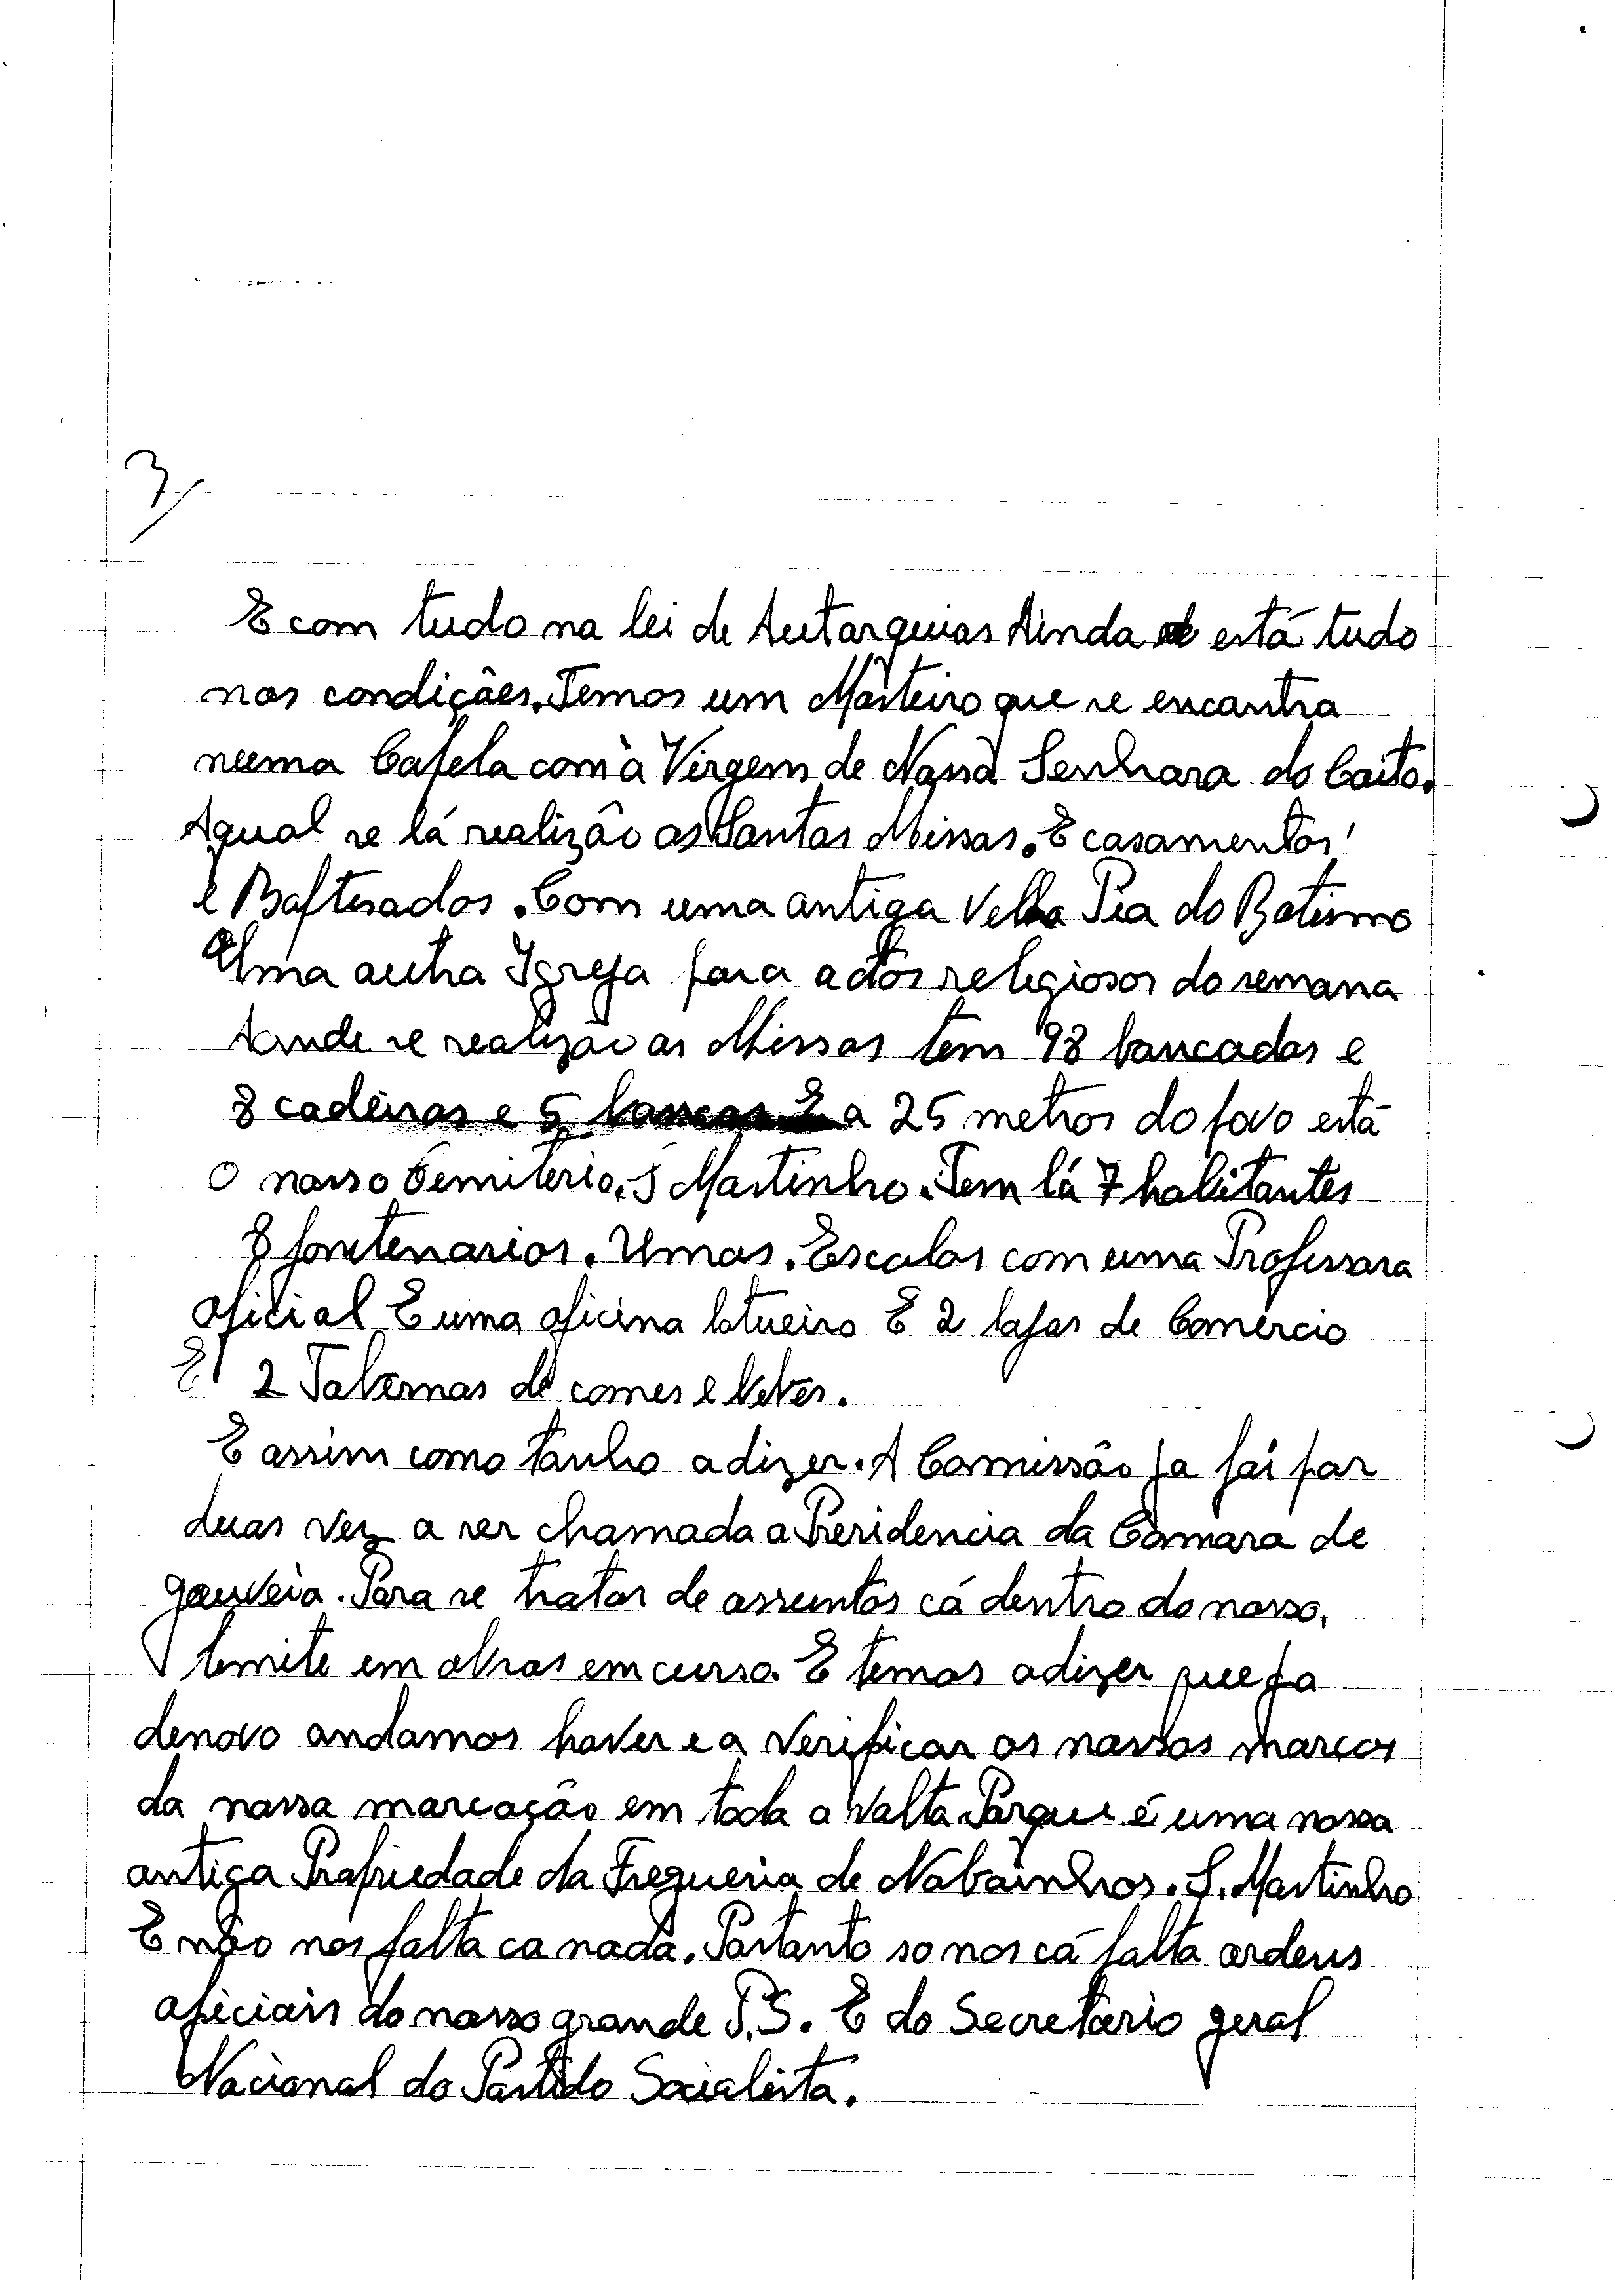 3/
E com tudo na lei de Autarquias Ainda está tudo
nas condições. Temos um Mosteiro que se encontra
numa Capela com à Virgem de Nossa Senhora do Coito.
Aqual se lá realizão as Santas Missas. E casamentos
e Baptisados. Com uma antiga Velha Pia do Batismo
Uma outra Igreja para actos religiosos do semana
Aonde se realizão as Missas tem 98 bancadas e
8 cadeiras e 5 a 25 metros do povo está
O nosso Cemiterio. S Martinho. Tem lá 7 habitantes
8 fontenarios. Umas. Escolas com uma Professora
oficial E uma oficina latueiro E 2 lojas de Comércio
E 2 Tabernas de comes e bebes.
E assim como tanho a dizer. A Comissão ja foi por
duas vez a ser chamada a Presidencia da Câmara de
gouveia. Para se tratar de assuntos cá dentro do nosso,
limite em obras em curso. E temos a dizer que ja
denovo andamos haver e a Verificar os nossos marcos
da nossa marcação em toda a Volta Porque é uma nossa
antiga Propriedade da Freguesia de Nabainhos. S. Martinho
E não nos falta ca nada. Portanto so nos cá falta ordens
oficiais do nosso grande P.S. E do Secretario geral
Nacional do Partido Socialista.